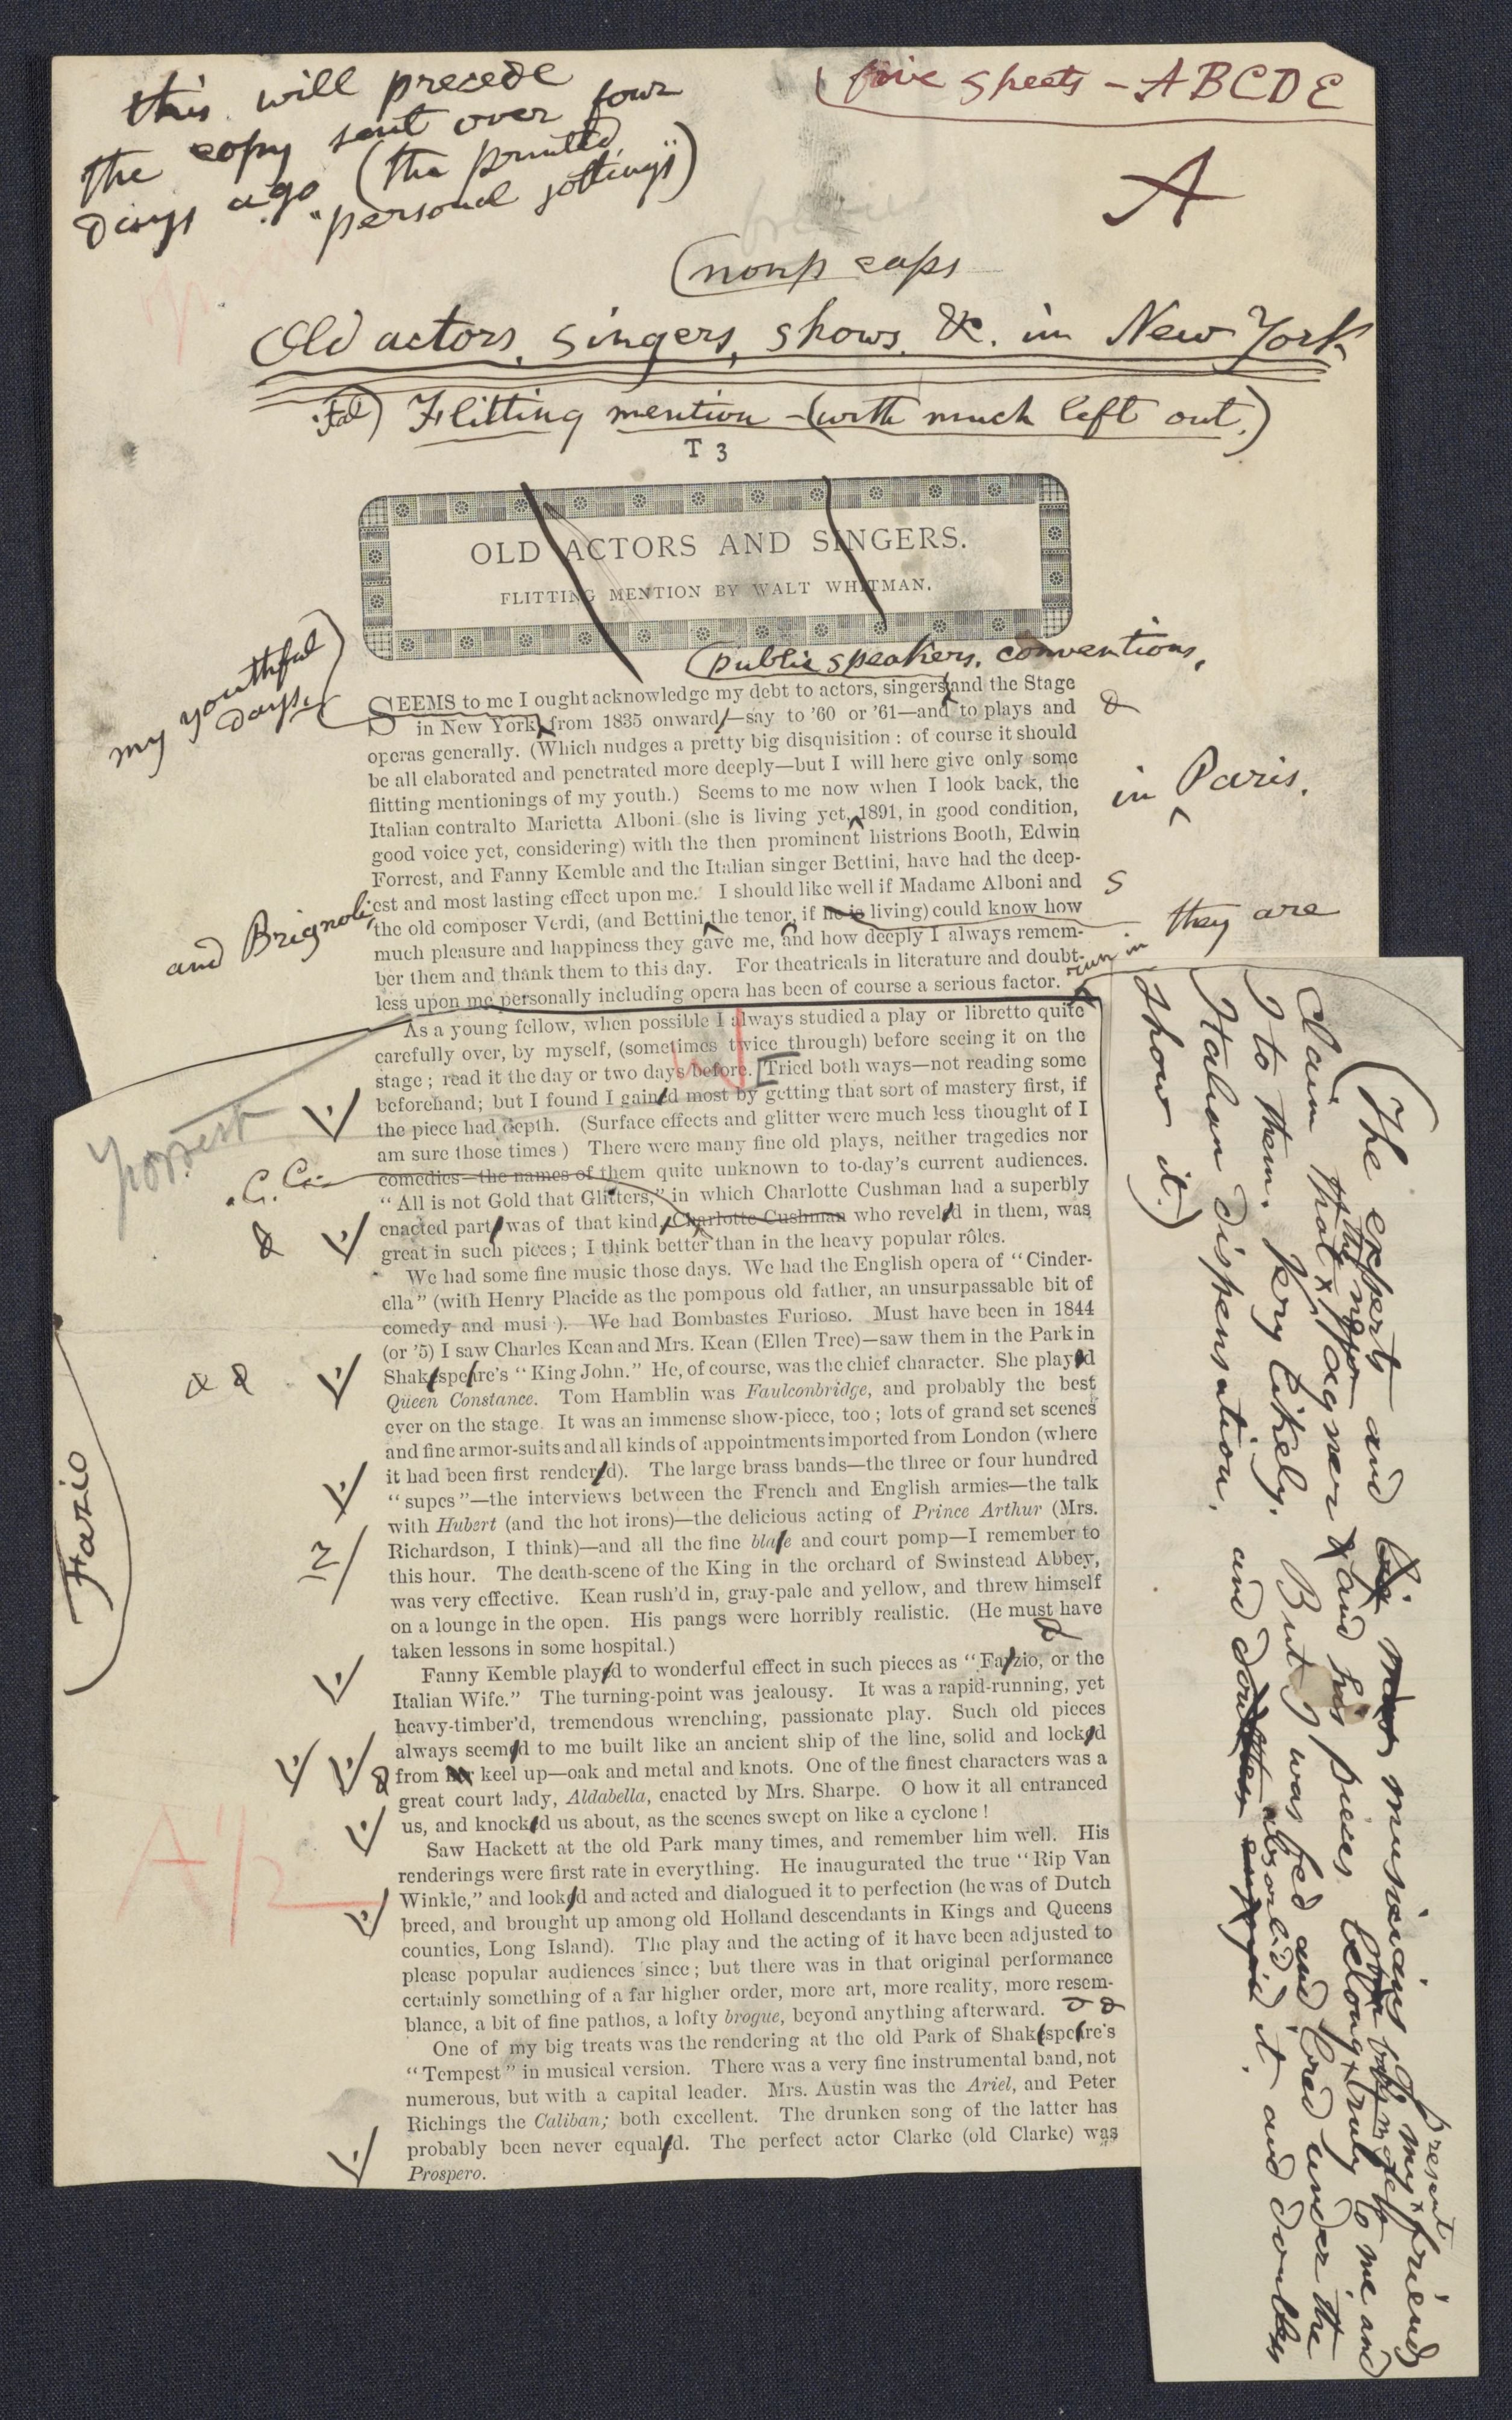 this will precede
the copy sent over four
days ago (the printed
"personal jottings")
(five sheets – A B C D E
A
(nonp caps
Old actors, singers, shows, &c. in New York
Flitting mention – (with much left out.)
T 3
OLD ACTORS AND SINGERS.
FLITTING MENTION BY WALT WHITMAN.
(public speakers, conventions,
my youthful
days,
SEEMS to me I ought acknowledge my debt to actors, singers, and the Stage
&
in New York, from 1835 onward,—say to '60 or '61—and to plays and
operas generally. (Which nudges a pretty big disquisition: of course it should
be all elaborated and penetrated more deeply—but I will here give only some
flitting mentionings of my youth.) Seems to me now when I look back, the
in Paris,
Italian contralto Marietta Alboni (she is living yet, 1891, in good condition,
good voice yet, considering) with the then prominent histrions Booth, Edwin
Forrest, and Fanny Kemble and the Italian singer Bettini, have had the deep-
s
est and most lasting effect upon me. I should like well if Madame Alboni and
and Brignoli
the old composer Verdi, (and Bettini the tenor, if he is living) could know how
they are
much pleasure and happiness they gave me, and how deeply I always remem-
ber them and thank them to this day. For theatricals in literature and doubt-
run in
less upon me personally including opera has been of course a serious factor.
As a young fellow, when possible I always studied a play or libretto quite
carefully over, by myself, (sometimes twice through) before seeing it on the
stage; read it the day or two days before. Tried both ways—not reading some
beforehand; but I found I gained most by getting that sort of mastery first, if
the piece had depth. (Surface effects and glitter were much less thought of I
am sure those times ) There were many fine old plays, neither tragedies nor
Forrest
comedies—the names of them quite unknown to to-day's current audiences.
C. C.
"All is not Gold that Glitters," in which Charlotte Cushman had a superbly
enacted part, was of that kind, Charlotte Cushman who reveled in them, was
great in such pieces; I think better than in the heavy popular rôles.
We had some fine music those days. We had the English opera of "Cinder-
ella" (with Henry Placide as the pompous old father, an unsurpassable bit of
comedy and musi ). We had Bombastes Furioso. Must have been in 1844
(or '5) I saw Charles Kean and Mrs. Kean (Ellen Tree)—saw them in the Park in
Shakespeare's "King John." He, of course, was the chief character. She played
Queen Constance. Tom Hamblin was Faulconbridge, and probably the best
ever on the stage. It was an immense show-piece, too; lots of grand set scenes
and fine armor-suits and all kinds of appointments imported from London (where
it had been first rendered). The large brass bands—the three or four hundred
"supes"—the interviews between the French and English armies—the talk
with Hubert (and the hot irons)—the delicious acting of Prince Arthur (Mrs.
Richardson, I think)—and all the fine blase and court pomp—I remember to
z/
this hour. The death-scene of the King in the orchard of Swinstead Abbey,
was very effective. Kean rush'd in, gray-pale and yellow, and threw himself
on a lounge in the open. His pangs were horribly realistic. (He must have
taken lessons in some hospital.)
Fazio
Fanny Kemble played to wonderful effect in such pieces as "Farzio, or the
Italian Wife." The turning-point was jealousy. It was a rapid-running, yet
heavy-timber'd, tremendous wrenching, passionate play. Such old pieces
always seemed to me built like an ancient ship of the line, solid and locked
from keel up—oak and metal and knots. One of the finest characters was a
great court lady, Aldabella, enacted by Mrs. Sharpe. O how it all entranced
us, and knocked us about, as the scenes swept on like a cyclone!
Saw Hackett at the old Park many times, and remember him well. His
renderings were first rate in everything. He inaugurated the true "Rip Van
Winkle," and looked and acted and dialogued it to perfection (he was of Dutch
breed, and brought up among old Holland descendants in Kings and Queens
counties, Long Island). The play and the acting of it have been adjusted to
please popular audiences since; but there was in that original performance
certainly something of a far higher order, more art, more reality, more resem-
blance, a bit of fine pathos, a lofty brogue, beyond anything afterward.
One of my big treats was the rendering at the old Park of Shakespeare's
"Tempest" in musical version. There was a very fine instrumental band, not
numerous, but with a capital leader. Mrs. Austin was the Ariel, and Peter
Richings the Caliban; both excellent. The drunken song of the latter has
probably been never equaled. The perfect actor Clarke (old Clarke) was
Prospero.
A/2
present
(The experts and musicians of my friends
claim that the new Wagner and his pieces belong truly to me and
I to them. Very likely. But I was fed and bred under the
Italian dispensation, and absorb'd it, and doubtless
show it.)